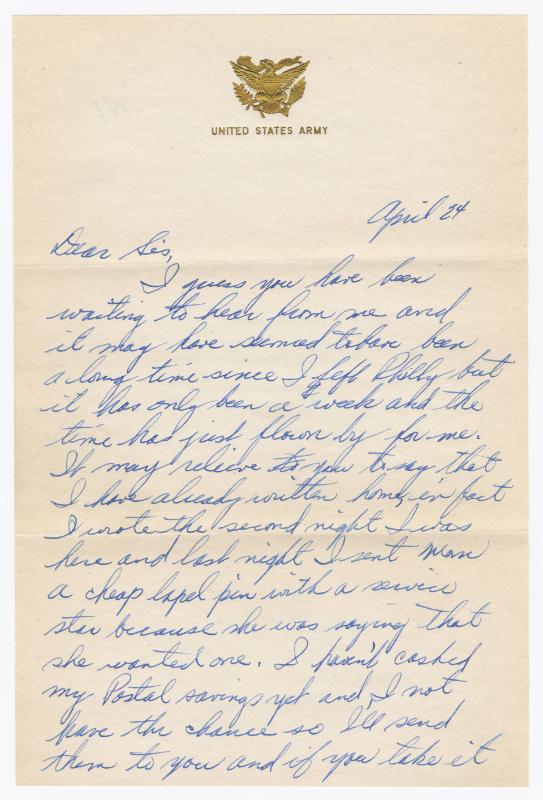 UNITED STATES ARMY
April 24
Dear Sis,
I guess you have been
waiting to hear from me and
it may have seemed to have been
a long time since I left Philly but
it has only been a week and the
time has just flown by for me.
It may relieve you to say that
I have already written home, in fact
I wrote the second night I was
here and last night I sent Mom
a cheap lapel pin with a service
star because she was saying that
she wanted one. I haven't cashed
my Postal savings yet and I not
have the chance so I'll send
them to you and if you take it